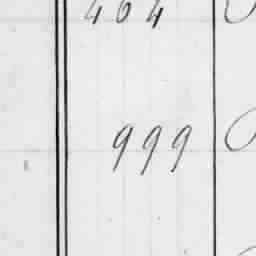 464
999